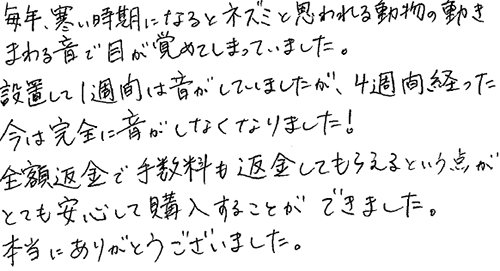 毎年、寒い時期になるとネズミと思われる動物の動き
まわる音で目が覚めてしまっていました。
設置して1週間は音がしていましたが、4週間経った
今は完全に音がしなくなりました!
全額返金で手数料も返金してもらえるという点が
とても安心して購入することができました。
本当にありがとうございました。